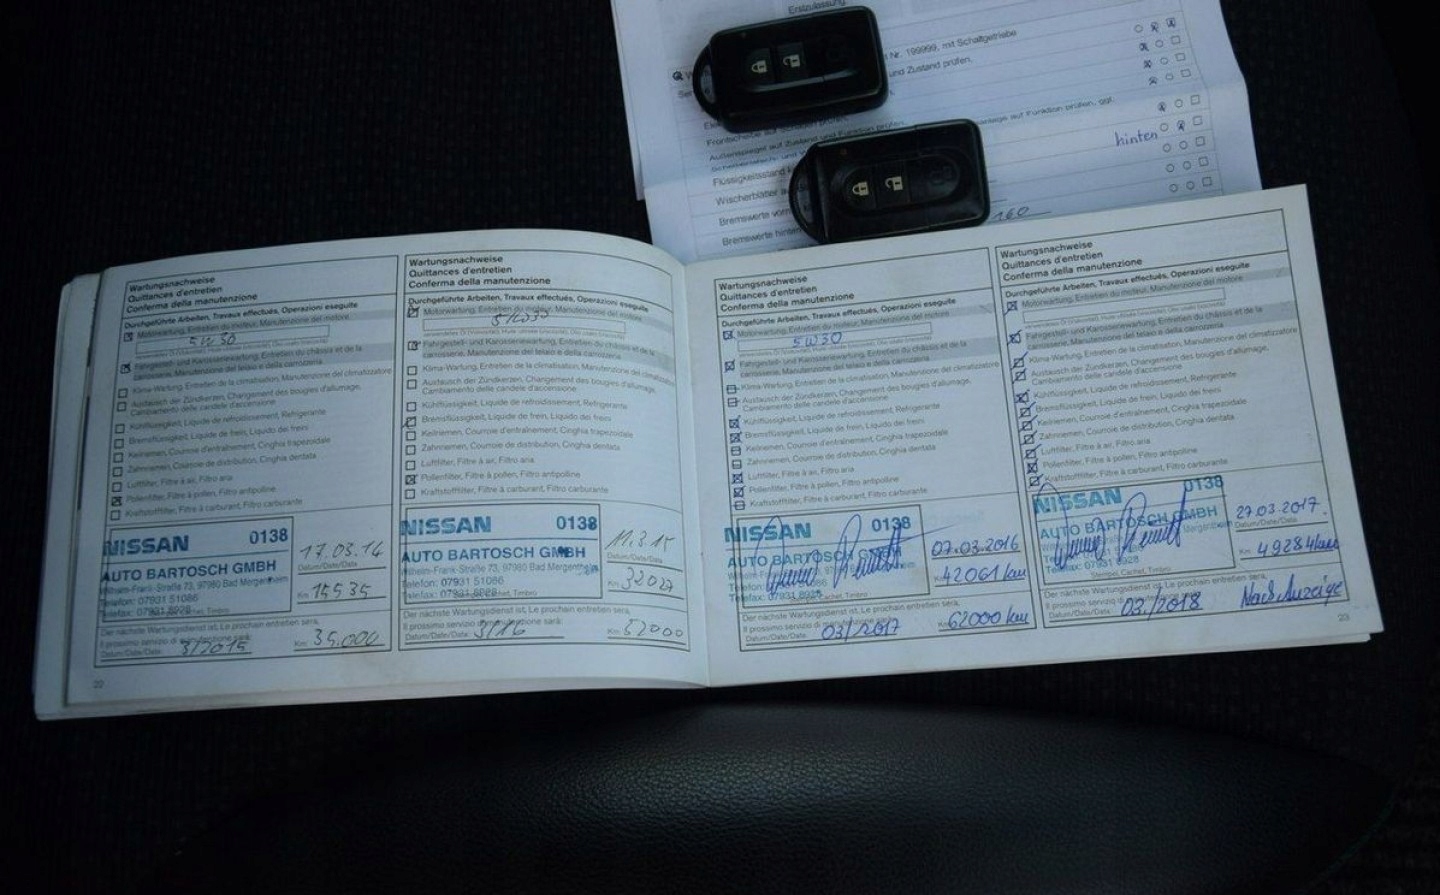 Erstzulassung
Nr. 199999, mit Schaltgetriebe
und Zustand prüfen.
Außenspiegel auf Zustand und Funktion prüfen,
hinten
Flüssigkeitsstand
Wischerblätter
Bremswerte
Bremswerte hinten
160
Wartungsnachweise
Quittances d'entretien
Conferma della manutenzione
Durchgeführte Arbeiten, Travaux effectués, Operazioni eseguite
Motorwartung, Entretien du moteur, Manutenzione del motore
5W30
Fahrgestell- und Karosseriewartung, Entretien du châssis et de la
carrosserie, Manutenzione del telaio e della carrozzeria
Klima-Wartung, Entretien de la climatisation, Manutenzione del climatizzatore
Austausch der Zündkerzen, Changement des bougies d'allumage,
Cambiamento delle candele d'accensione
Kühlflüssigkeit, Liquide de refroidissement, Refrigerante
Bremsflüssigkeit, Liquide de frein, Liquido dei freni
Keilriemen, Courroie d'entraînement, Cinghia trapezoidale
Zahnriemen, Courroie de distribution, Cinghia dentata
Luftfilter, Filtre à air, Filtro aria
Pollenfilter, Filtre à pollen, Filtro antipolline
Kraftstofffilter, Filtre à carburant, Filtro carburante
NISSAN 0138
AUTO BARTOSCH GMBH
Wilhelm-Frank-Straße 73, 97980 Bad Mergentheim
Telefon: 07931 51086
Telefax: 07931 8928
17.03.14
Datum/Date/Data
Km: 15535
Der nächste Wartungsdienst ist, Le prochain entretien sera,
Il prossimo servizio di manutenzione sarà:
Datum/Date/Data: 3/2015 Km: 35.000
22
Wartungsnachweise
Quittances d'entretien
Conferma della manutenzione
Durchgeführte Arbeiten, Travaux effectués, Operazioni eseguite
Motorwartung, Entretien du moteur, Manutenzione del motore
5W30
Fahrgestell- und Karosseriewartung, Entretien du châssis et de la
carrosserie, Manutenzione del telaio e della carrozzeria
Klima-Wartung, Entretien de la climatisation, Manutenzione del climatizzatore
Austausch der Zündkerzen, Changement des bougies d'allumage,
Cambiamento delle candele d'accensione
Kühlflüssigkeit, Liquide de refroidissement, Refrigerante
Bremsflüssigkeit, Liquide de frein, Liquido dei freni
Keilriemen, Courroie d'entraînement, Cinghia trapezoidale
Zahnriemen, Courroie de distribution, Cinghia dentata
Luftfilter, Filtre à air, Filtro aria
Pollenfilter, Filtre à pollen, Filtro antipolline
Kraftstofffilter, Filtre à carburant, Filtro carburante
NISSAN 0138
AUTO BARTOSCH GMBH
Wilhelm-Frank-Straße 73, 97980 Bad Mergentheim
Telefon: 07931 51086
Telefax: 07931 8928
11.3.15
Datum/Date/Data
Km: 32027
Der nächste Wartungsdienst ist, Le prochain entretien sera,
Il prossimo servizio di manutenzione sarà:
Datum/Date/Data: 3/16 Km: 52000
Wartungsnachweise
Quittances d'entretien
Conferma della manutenzione
Durchgeführte Arbeiten, Travaux effectués, Operazioni eseguite
Motorwartung, Entretien du moteur, Manutenzione del motore
5W30
Fahrgestell- und Karosseriewartung, Entretien du châssis et de la
carrosserie, Manutenzione del telaio e della carrozzeria
Klima-Wartung, Entretien de la climatisation, Manutenzione del climatizzatore
Austausch der Zündkerzen, Changement des bougies d'allumage,
Cambiamento delle candele d'accensione
Kühlflüssigkeit, Liquide de refroidissement, Refrigerante
Bremsflüssigkeit, Liquide de frein, Liquido dei freni
Keilriemen, Courroie d'entraînement, Cinghia trapezoidale
Zahnriemen, Courroie de distribution, Cinghia dentata
Luftfilter, Filtre à air, Filtro aria
Pollenfilter, Filtre à pollen, Filtro antipolline
Kraftstofffilter, Filtre à carburant, Filtro carburante
NISSAN 0138
AUTO BARTOSCH GMBH
07.03.2016
Km: 42061 km
Der nächste Wartungsdienst ist, Le prochain entretien sera,
Il prossimo servizio di manutenzione sarà:
Datum/Date/Data: 03/2017 Km: 62000 km
Wartungsnachweise
Quittances d'entretien
Conferma della manutenzione
Durchgeführte Arbeiten, Travaux effectués, Operazioni eseguite
Motorwartung, Entretien du moteur, Manutenzione del motore
Fahrgestell- und Karosseriewartung, Entretien du châssis et de la
carrosserie, Manutenzione del telaio e della carrozzeria
Klima-Wartung, Entretien de la climatisation, Manutenzione del climatizzatore
Austausch der Zündkerzen, Changement des bougies d'allumage,
Cambiamento delle candele d'accensione
Kühlflüssigkeit, Liquide de refroidissement, Refrigerante
Bremsflüssigkeit, Liquide de frein, Liquido dei freni
Keilriemen, Courroie d'entraînement, Cinghia trapezoidale
Zahnriemen, Courroie de distribution, Cinghia dentata
Luftfilter, Filtre à air, Filtro aria
Pollenfilter, Filtre à pollen, Filtro antipolline
Kraftstofffilter, Filtre à carburant, Filtro carburante
NISSAN 0138
AUTO BARTOSCH GMBH
27.03.2017.
Datum/Date/Data
Km: 49284 km
Stempel, Cachet, Timbro
Der nächste Wartungsdienst ist, Le prochain entretien sera,
Il prossimo servizio di manutenzione sarà:
Datum/Date/Data: 03/2018 Nach Anzeige
23